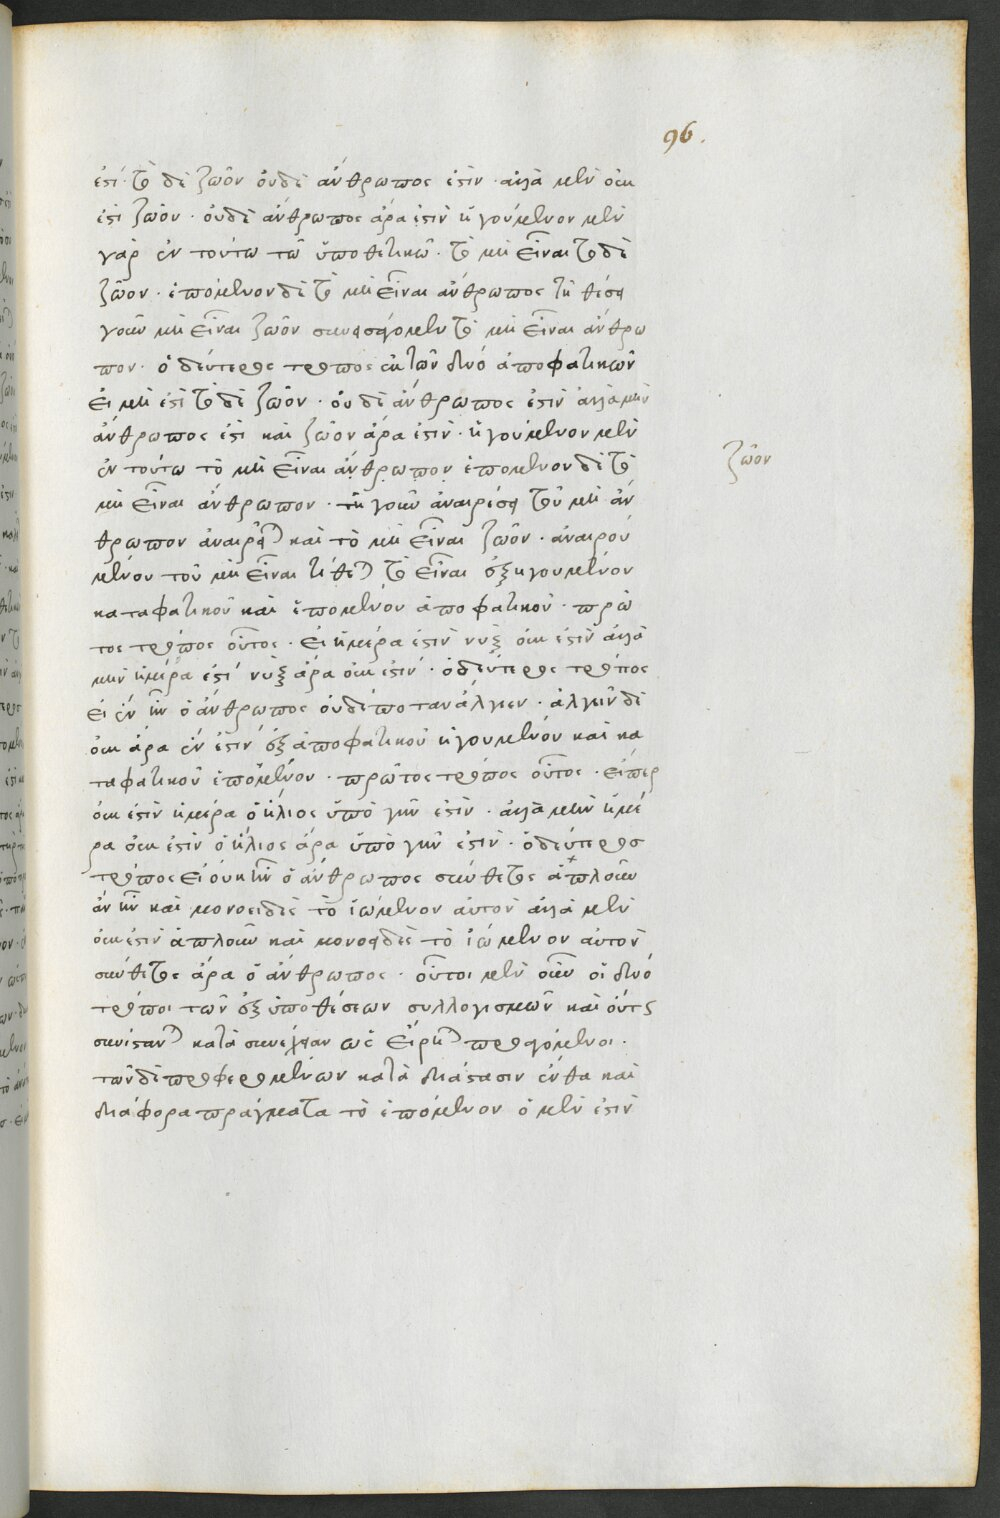 96.
ἐστὶ τόδε ζῶον οὐδὲ ἄνθρωπος ἐστὶν· ἀλλὰ μὲν οὐκ
ἐστὶ ζῶον· οὐδὲ ἄνθρωπος ἄρα ἐστὶν ἡγούμενον μὲν
γὰρ ἐν τούτω τῶ ὑποθετικῶ· τὸ μὴ εἶναι τόδε
ζῶον· ἑπόμενον δὲ τὸ μὴ εἶναι ἄνθρωπος τῆ θέσει
γοῦν μὴ εἶναι ζῶον συνεισάγομεν τὸ μὴ εἶναι ἄνθρω
πον· ὁ δεύτερος τρόπος ἐκ τῶν δυό ἀποφατικῶν
εἰ μὴ ἐστὶ τόδε ζῶον· οὐδὲ ἄνθρωπος ἐστὶν ἀλλὰ μὴν
ἄνθρωπος ἐστὶ καὶ ζῶον ἄρα ἐστὶν· ἡγούμενον μὲν
ἐν τούτω τὸ μὴ εἶναι ἄνθρωπον ἑπόμενον δὲ τὸ
ζῶον
μὴ εἶναι ἄνθρωπον· τῆ γοῦν ἀναιρέσει τοῦ μὴ ἄν
θρωπον ἀναιρεῖται καὶ τὸ μὴ εἶναι ζῶον· ἀναιρου
μένου τοῦ μὴ εἶναι τίθεται τὸ εἶναι ἐξ ηγουμένου
καταφατικοῦ καὶ ἑπομένου ἀποφατικοῦ· πρῶ
τος τρόπος οὗτος· εἰ ἡμέρα ἐστὶν νὺξ οὐκ ἐστὶν ἀλλὰ
μὴν ἡμέρα ἐστὶ νὺξ ἄρα οὐκ ἐστὶν· ὁ δεύτερος τρόπος
εἰ ἓν ἦν ὁ ἄνθρωπος οὐδέποτ αν ἄλγεεν· ἀλγεῖν δὲ
οὐκ ἄρα ἓν ἐστὶν ἐξ ἀποφατικοῦ ἡγουμένου καὶ κα
ταφατικοῦ ἑπομένου· πρῶτος τρόπος οὗτος· εἴπερ
οὐκ ἐστὶν ἡμέρα ὁ ἥλιος ὑπὸ γῆν ἐστὶν· ἀλλὰ μὴν ἡμέ
ρα οὐκ ἐστὶν ὁ ἥλιος ἄρα ὑπὸ γῆν ἐστὶν· ὁ δεύτερος
τρόπος εἰ οὐκ ἦν ὁ ἄνθρωπος σύνθετος ἁπλοῦν
ἂν ἦν καὶ μονοειδὲς τὸ ἰώμενον αὐτὸν ἀλλὰ μὲν
οὐκ ἐστὶν ἁπλοῦν καὶ μονοειδὲς τὸ ἰώμενον αὐτὸν
σύνθετος ἄρα ὁ ἄνθρωπος· οὗτοι μὲν οὖν οἱ δυό
τρόποι τῶν ἐξ ὑποθέσεων συλλογισμῶν καὶ οὕτως
συνίστανται κατὰ συνέχειαν ὡς εἴρηται προαγόμενοι·
τῶν δὲ προφερομένων κατὰ διάστασιν ἔνθα καὶ
διάφορα πράγματα τὸ ἑπόμενον ὁ μὲν ἐστὶν